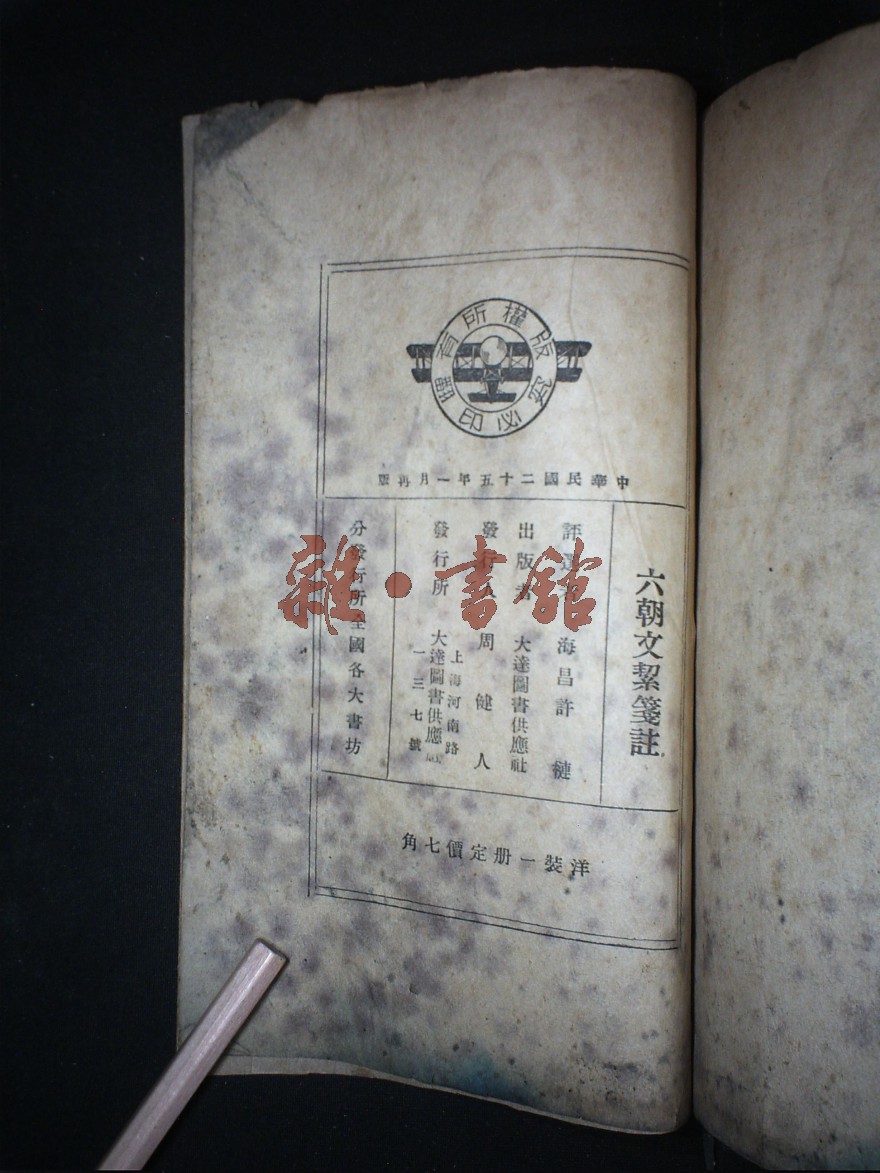 版權所有
翻印必究
中華民國二十五年一月再版
六朝文絜箋註
評選者 海昌許槤
出版者 大達圖書供應社
發行人 周健人
發行所 上海河南路
大達圖書供應社
一三七號
分發行所全國各大書坊
洋裝一册定價七角
雜·書館